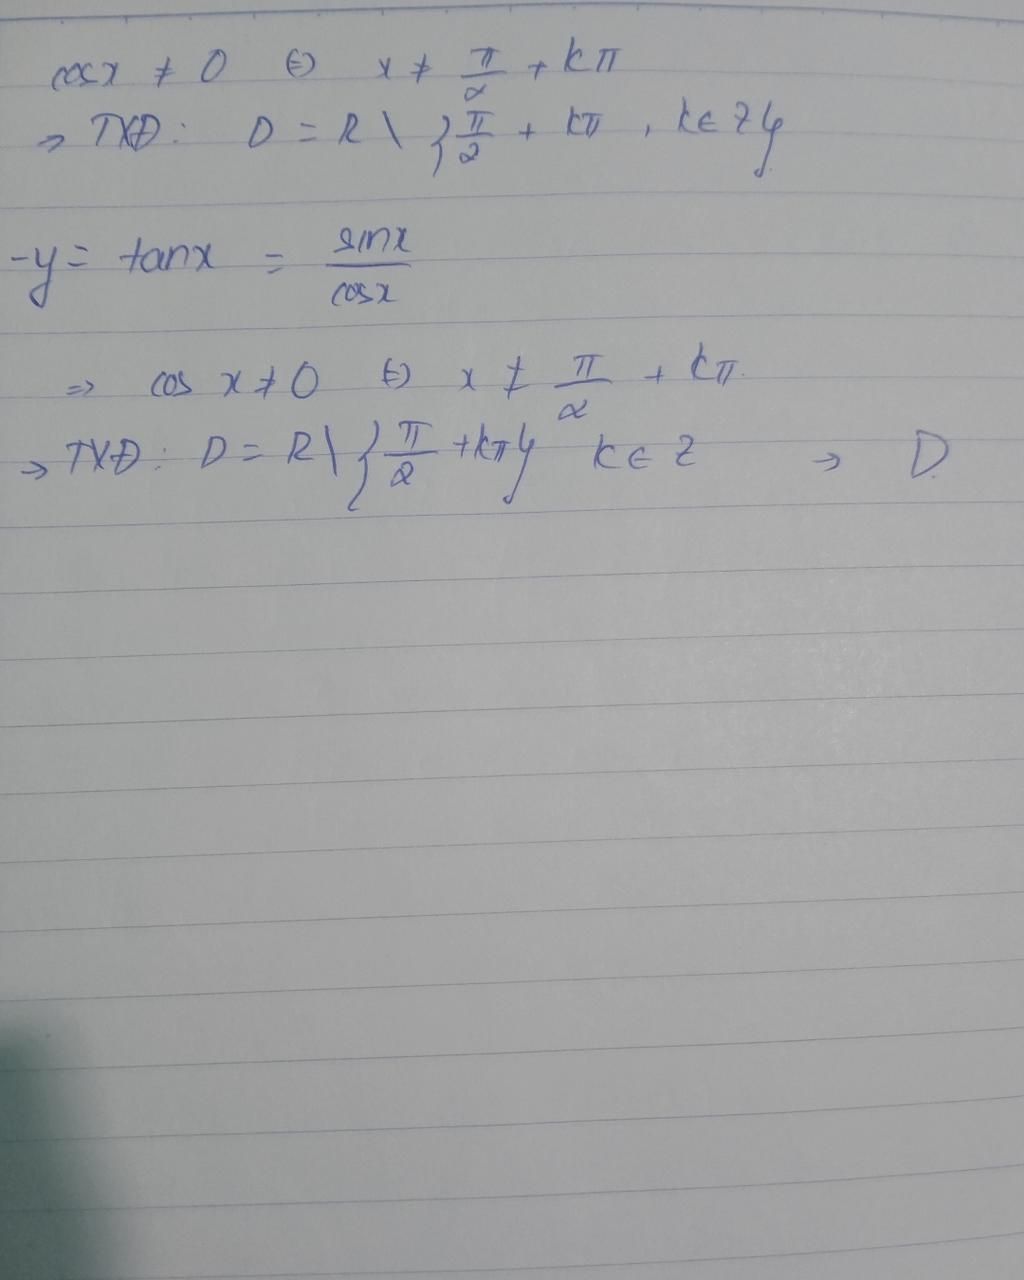 cosx ≠ 0 ⇔ x ≠ π/2 + kπ
⇒ TXĐ: D = R \ {π/2 + kπ, k ∈ Z}
- y = tanx = sinx/cosx
⇒ cos x ≠ 0 ⇔ x ≠ π/2 + kπ.
→ TXĐ: D = R \ {π/2 + kπ} k ∈ Z → D.